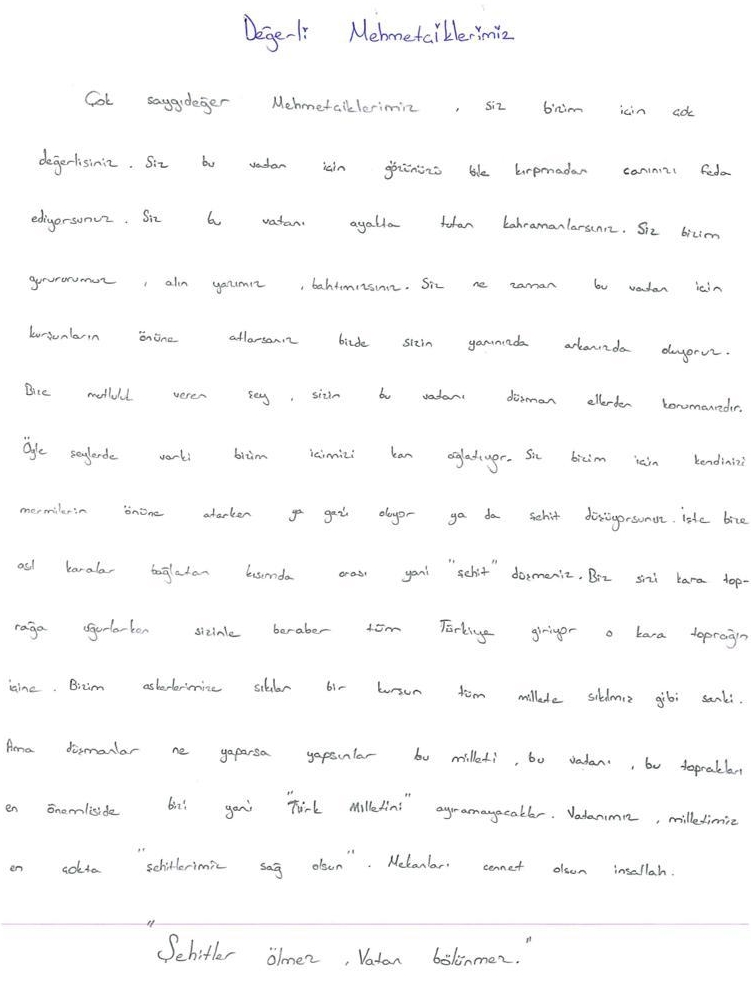 Değerli Mehmetciklerimiz
Çok saygıdeğer Mehmetciklerimiz , siz bizim için çok
değerlisiniz . Siz bu vatan için gözünüzü bile kırpmadan canınızı feda
ediyorsunuz . Siz bu vatanı ayakta tutan kahramanlarsınız. Siz bizim
gurururumuz , alın yazımız , bahtımızsınız. Siz ne zaman bu vatan için
kurşunların önüne atlarsanız bizde sizin yanınızda arkanızda oluyoruz.
Bize mutluluk veren şey , sizin bu vatanı düşman ellerden korumanızdır.
Öyle şeylerde varki bizim içimizi kan ağlatıyor. Siz bizim için kendinizi
mermilerin önüne atarken ya gazi oluyor ya da şehit düşüyorsunuz. İşte bize
asıl karalar bağlatan kısımda orası yani "şehit" düşmeniz. Biz sizi kara top-
rağa uğurlarken sizinle beraber tüm Türkiye giriyor o kara toprağın
içine . Bizim askerlerimize sıkılan bir kurşun tüm millete sıkılmış gibi sanki .
Ama düşmanlar ne yaparsa yapsınlar bu milleti , bu vatanı , bu toprakları
en önemliside bizi yani "Türk Milletini" ayıramayacaklar. Vatanımız , milletimiz
en çokta "şehitlerimiz sağ olsun" . Mekanları cennet olsun inşallah .
"Şehitler ölmez , Vatan bölünmez."